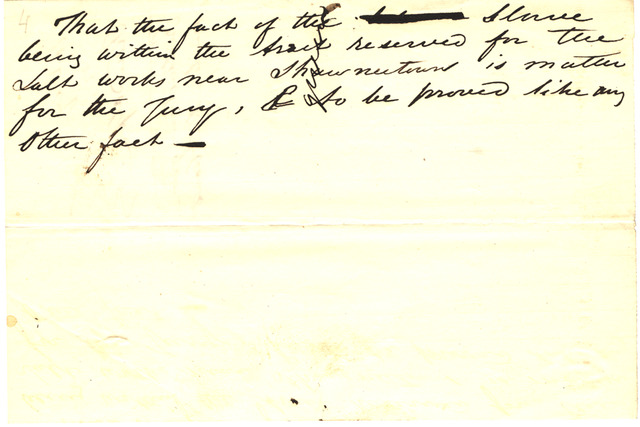 4
That the fact of the Slave
being within the tract reserved for the
Salt works near Shawneetown is matter
for the Jury, & to be proved like any
Other fact —